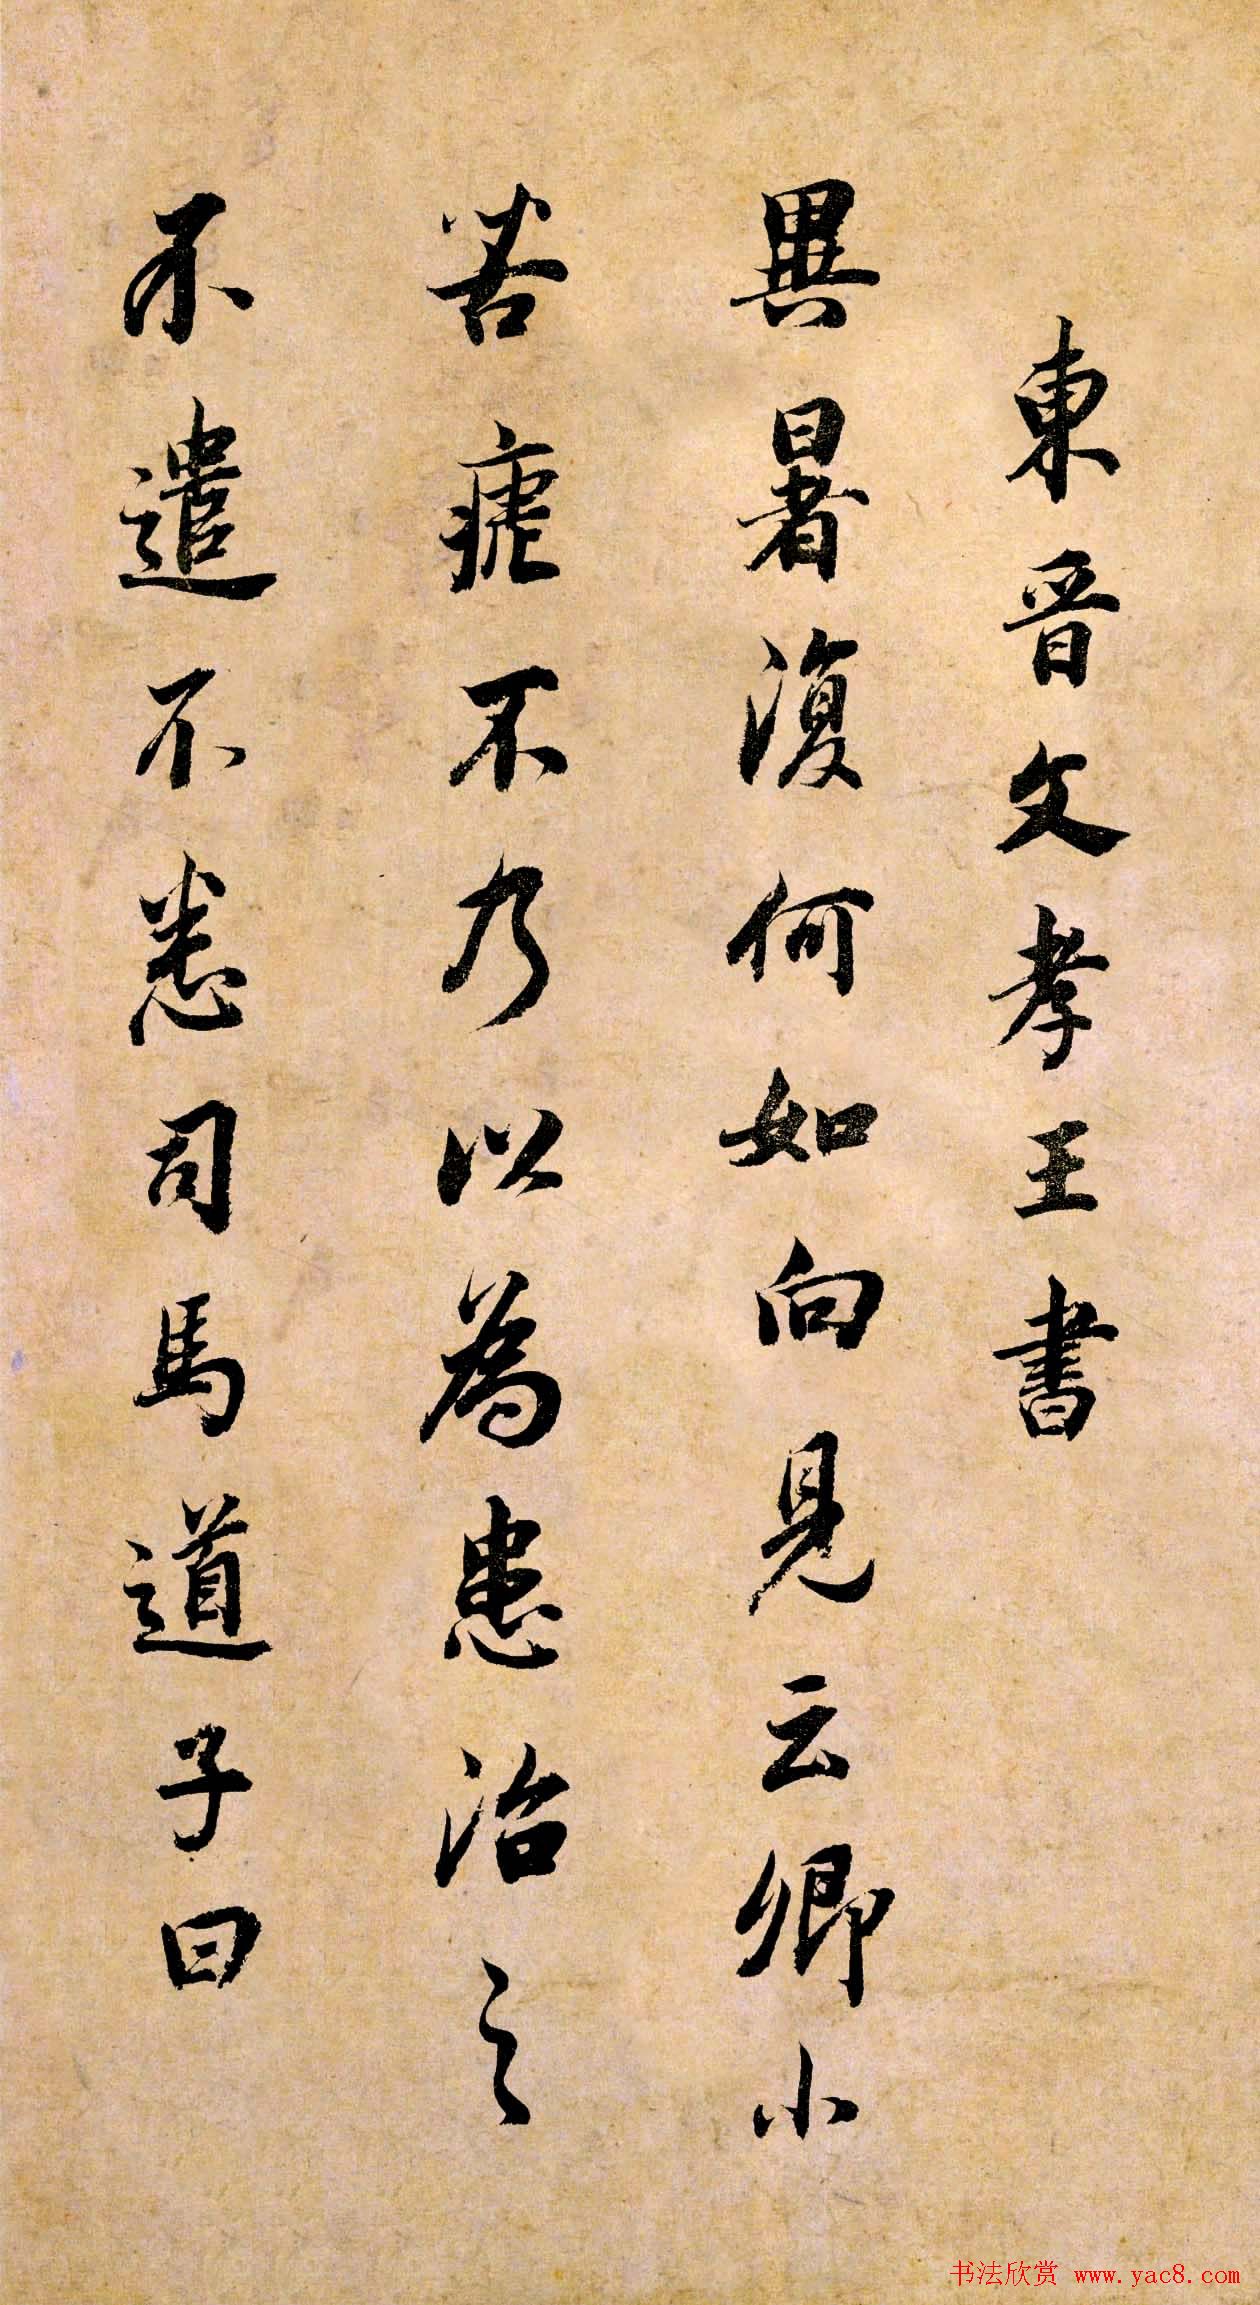 東晉文孝王書
異暑復何如向見云卿小
苦瘧不乃以為患治之
不遣不悉司馬道子曰
书法欣赏 www.yac8.com